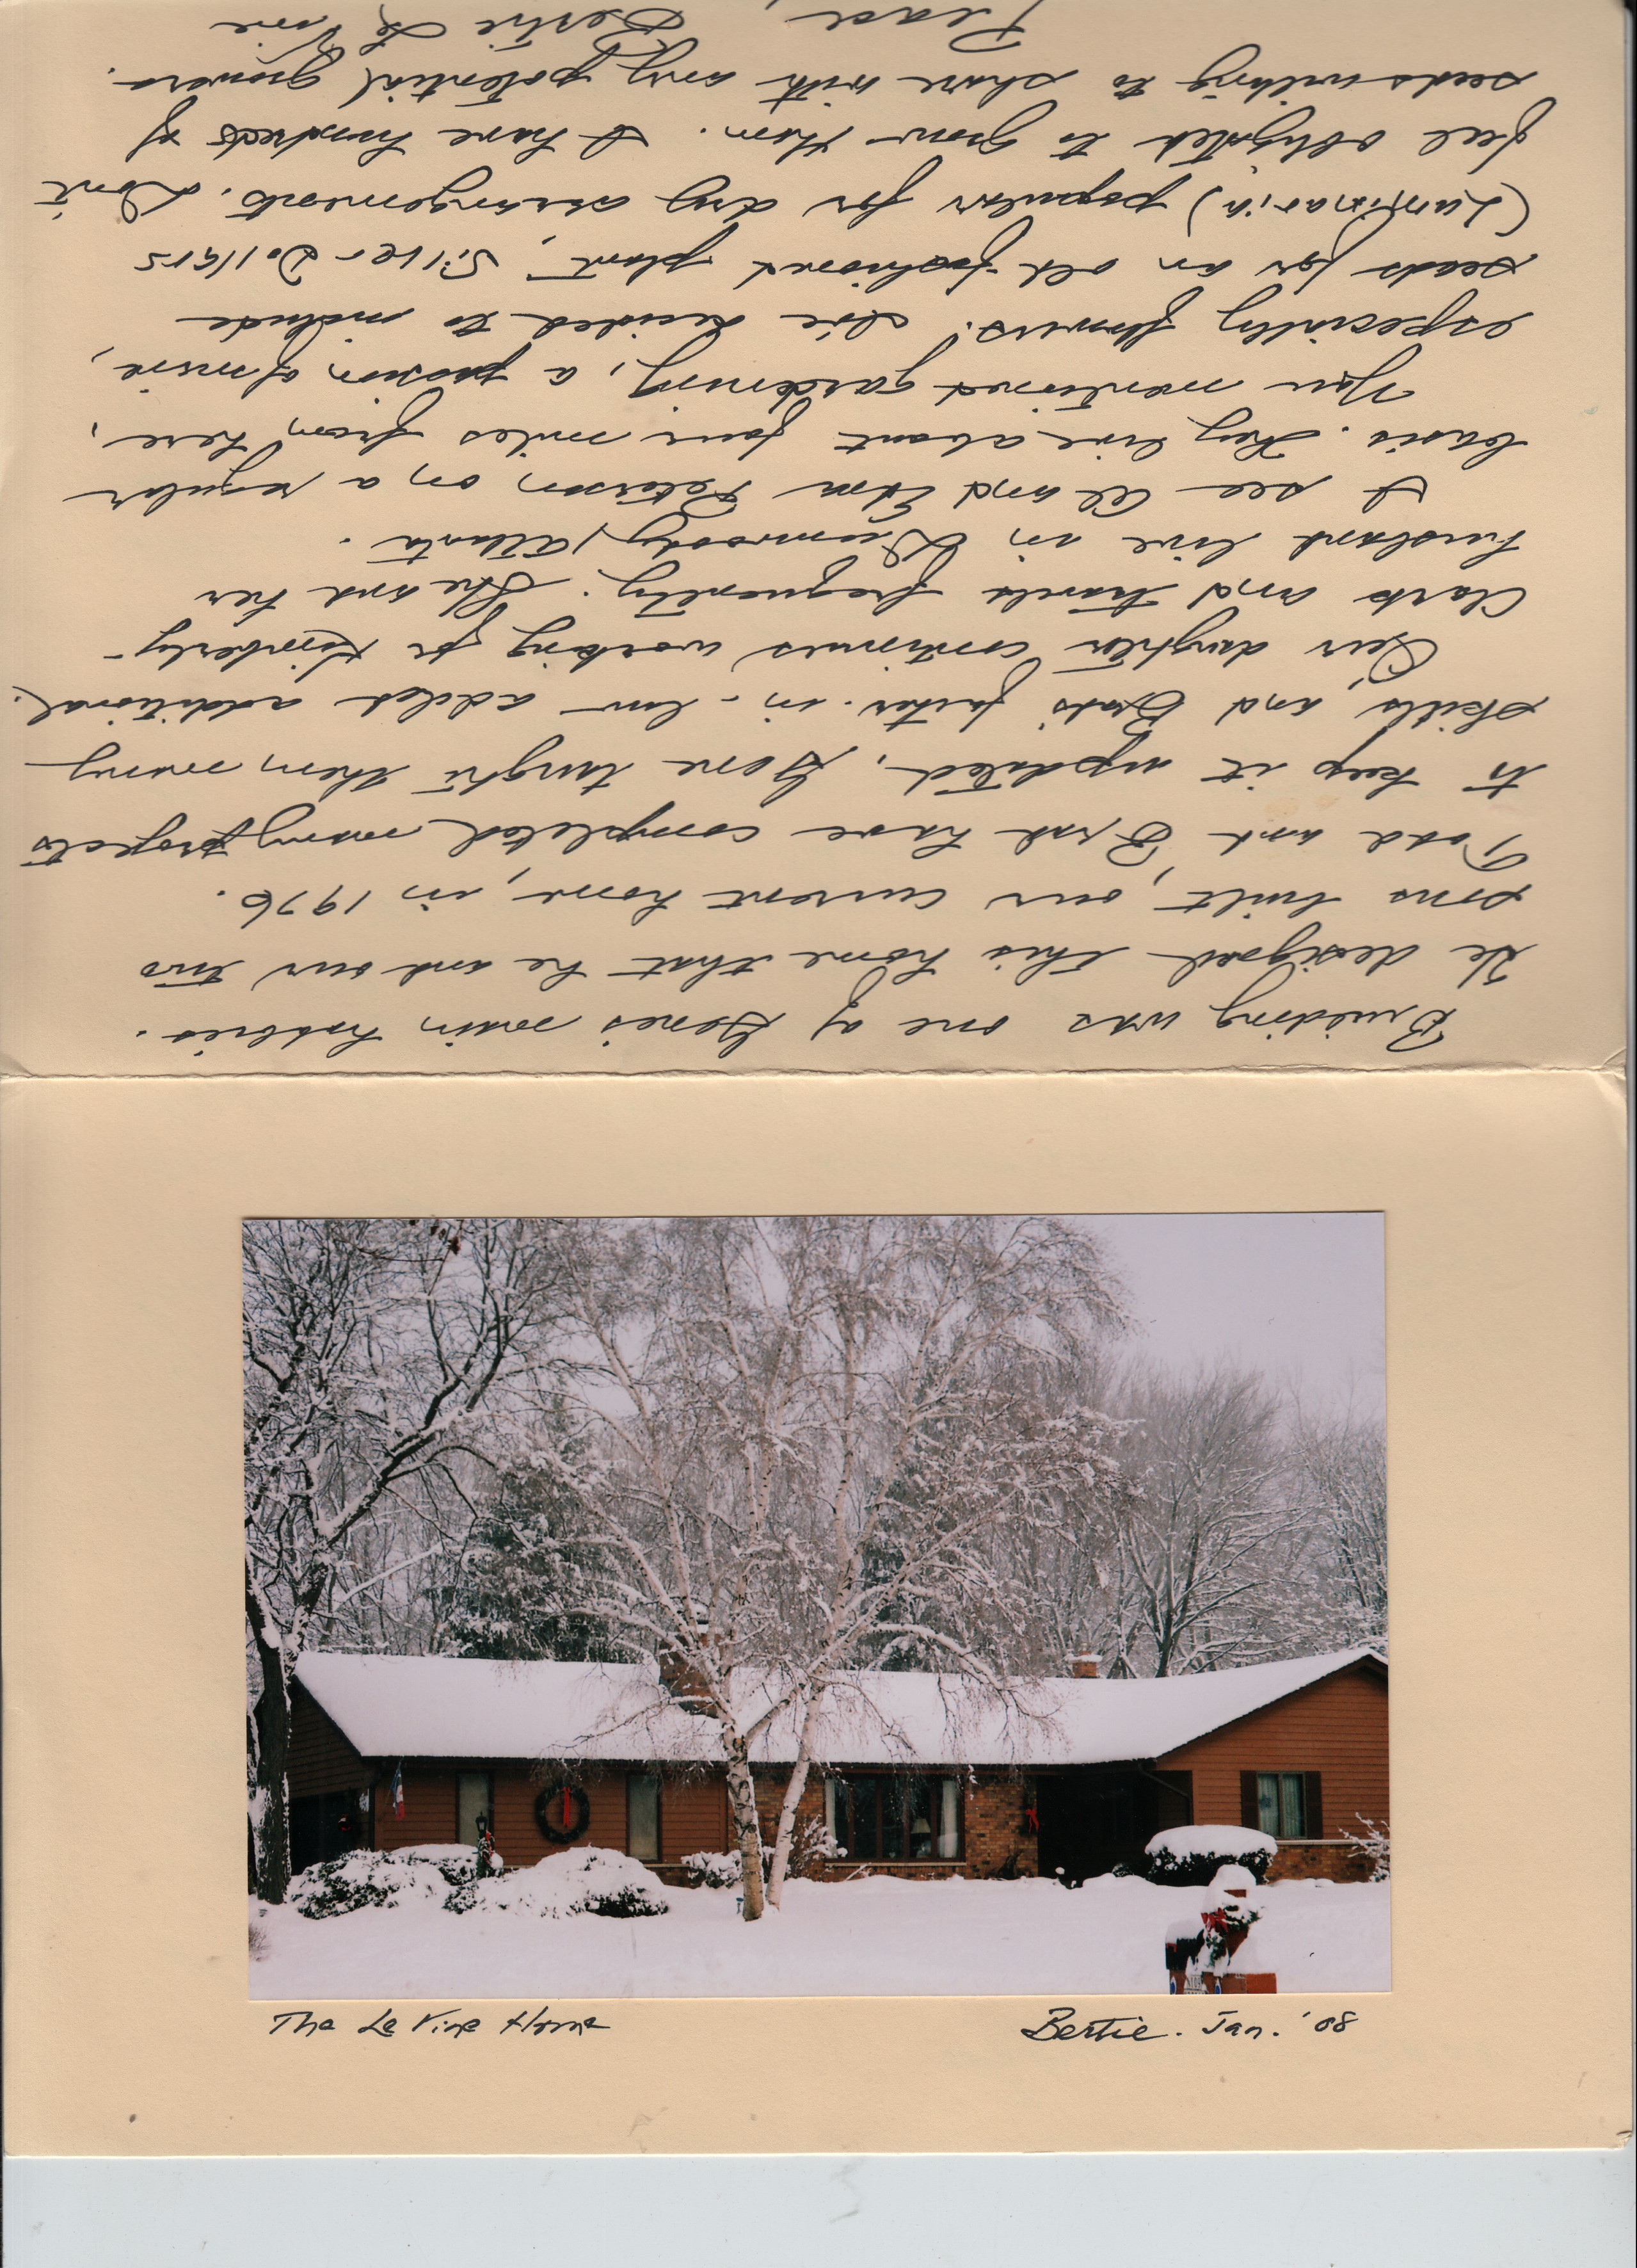 Building was one of Gene's main hobbies.
He designed this home that he and our two
sons built, our current home, in 1976.
Todd and Brad have completed many projects
to keep it updated. Gene taught them many
skills and Brad's father-in-law added additional.
Our daughter continues working for Kimberly-
Clark and travels frequently. She and her
husband live in Dunwoody, Atlanta.
I see Al and Peterson on a regular
basis. They live about four miles from here.
You mentioned gardening, a passion of mine,
especially flowers! I've decided to include
seeds for an old-fashioned plant, Silver Dollars
popular for dry arrangements. Don't
feel obligated to grow them. I have hundreds of
seeds willing to share with any potential growers.
Peace,
Bertie LeVine
The LeVine Home
Bertie. Jan. '08